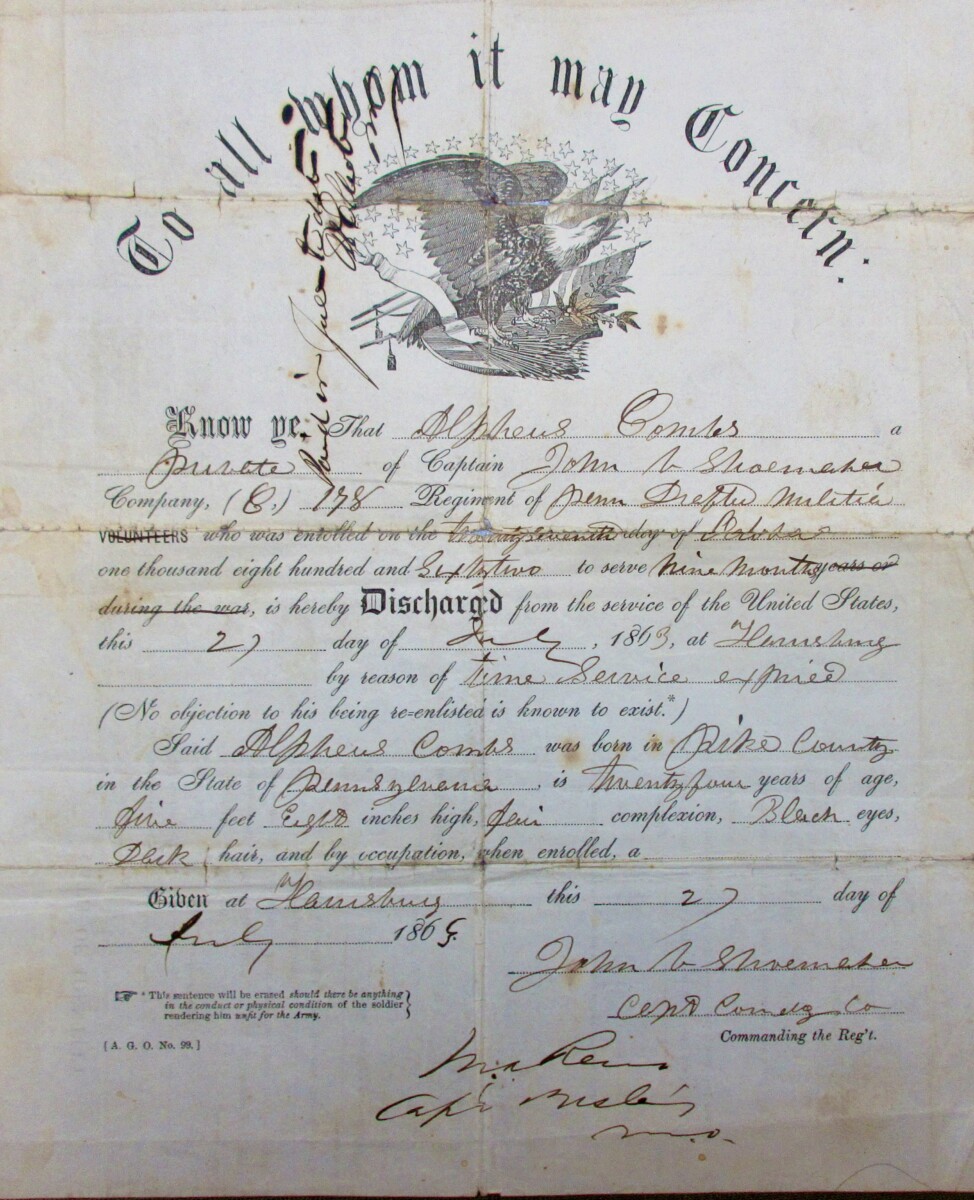 To all whom it may Concern:
Paid in
Know ye, That Alpheus Combs a
Private of Captain John V Shoemaker
Company, (C,) 178 Regiment of Penn Drafted Militia
VOLUNTEERS who was enrolled on the twenty seventh day of October
one thousand eight hundred and Sixty two to serve Nine Months years or
during the war, is hereby Discharged from the service of the United States,
this 27 day of July, 1863, at Harrisburg
by reason of time Service expired
(No objection to his being re-enlisted is known to exist.*)
Said Alpheus Combs was born in Pike County
in the State of Pennsylvania, is Twenty four years of age,
five feet Eight inches high, fair complexion, Black eyes,
Dark hair, and by occupation, when enrolled, a
Given at Harrisburg this 27 day of
July 1863.
John V Shoemaker
Capt Comdg Co
Commanding the Reg't.
☞ * This sentence will be erased should there be anything
in the conduct or physical condition of the soldier
rendering him unfit for the Army.
[A. G. O. No. 99.]
Capt
M.O.